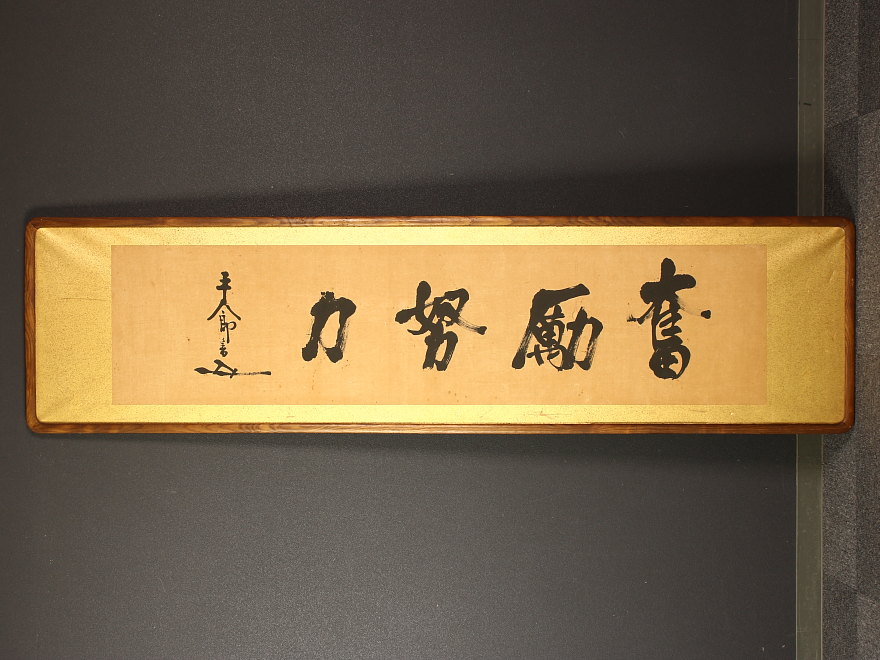 奮励努力
平八郎書